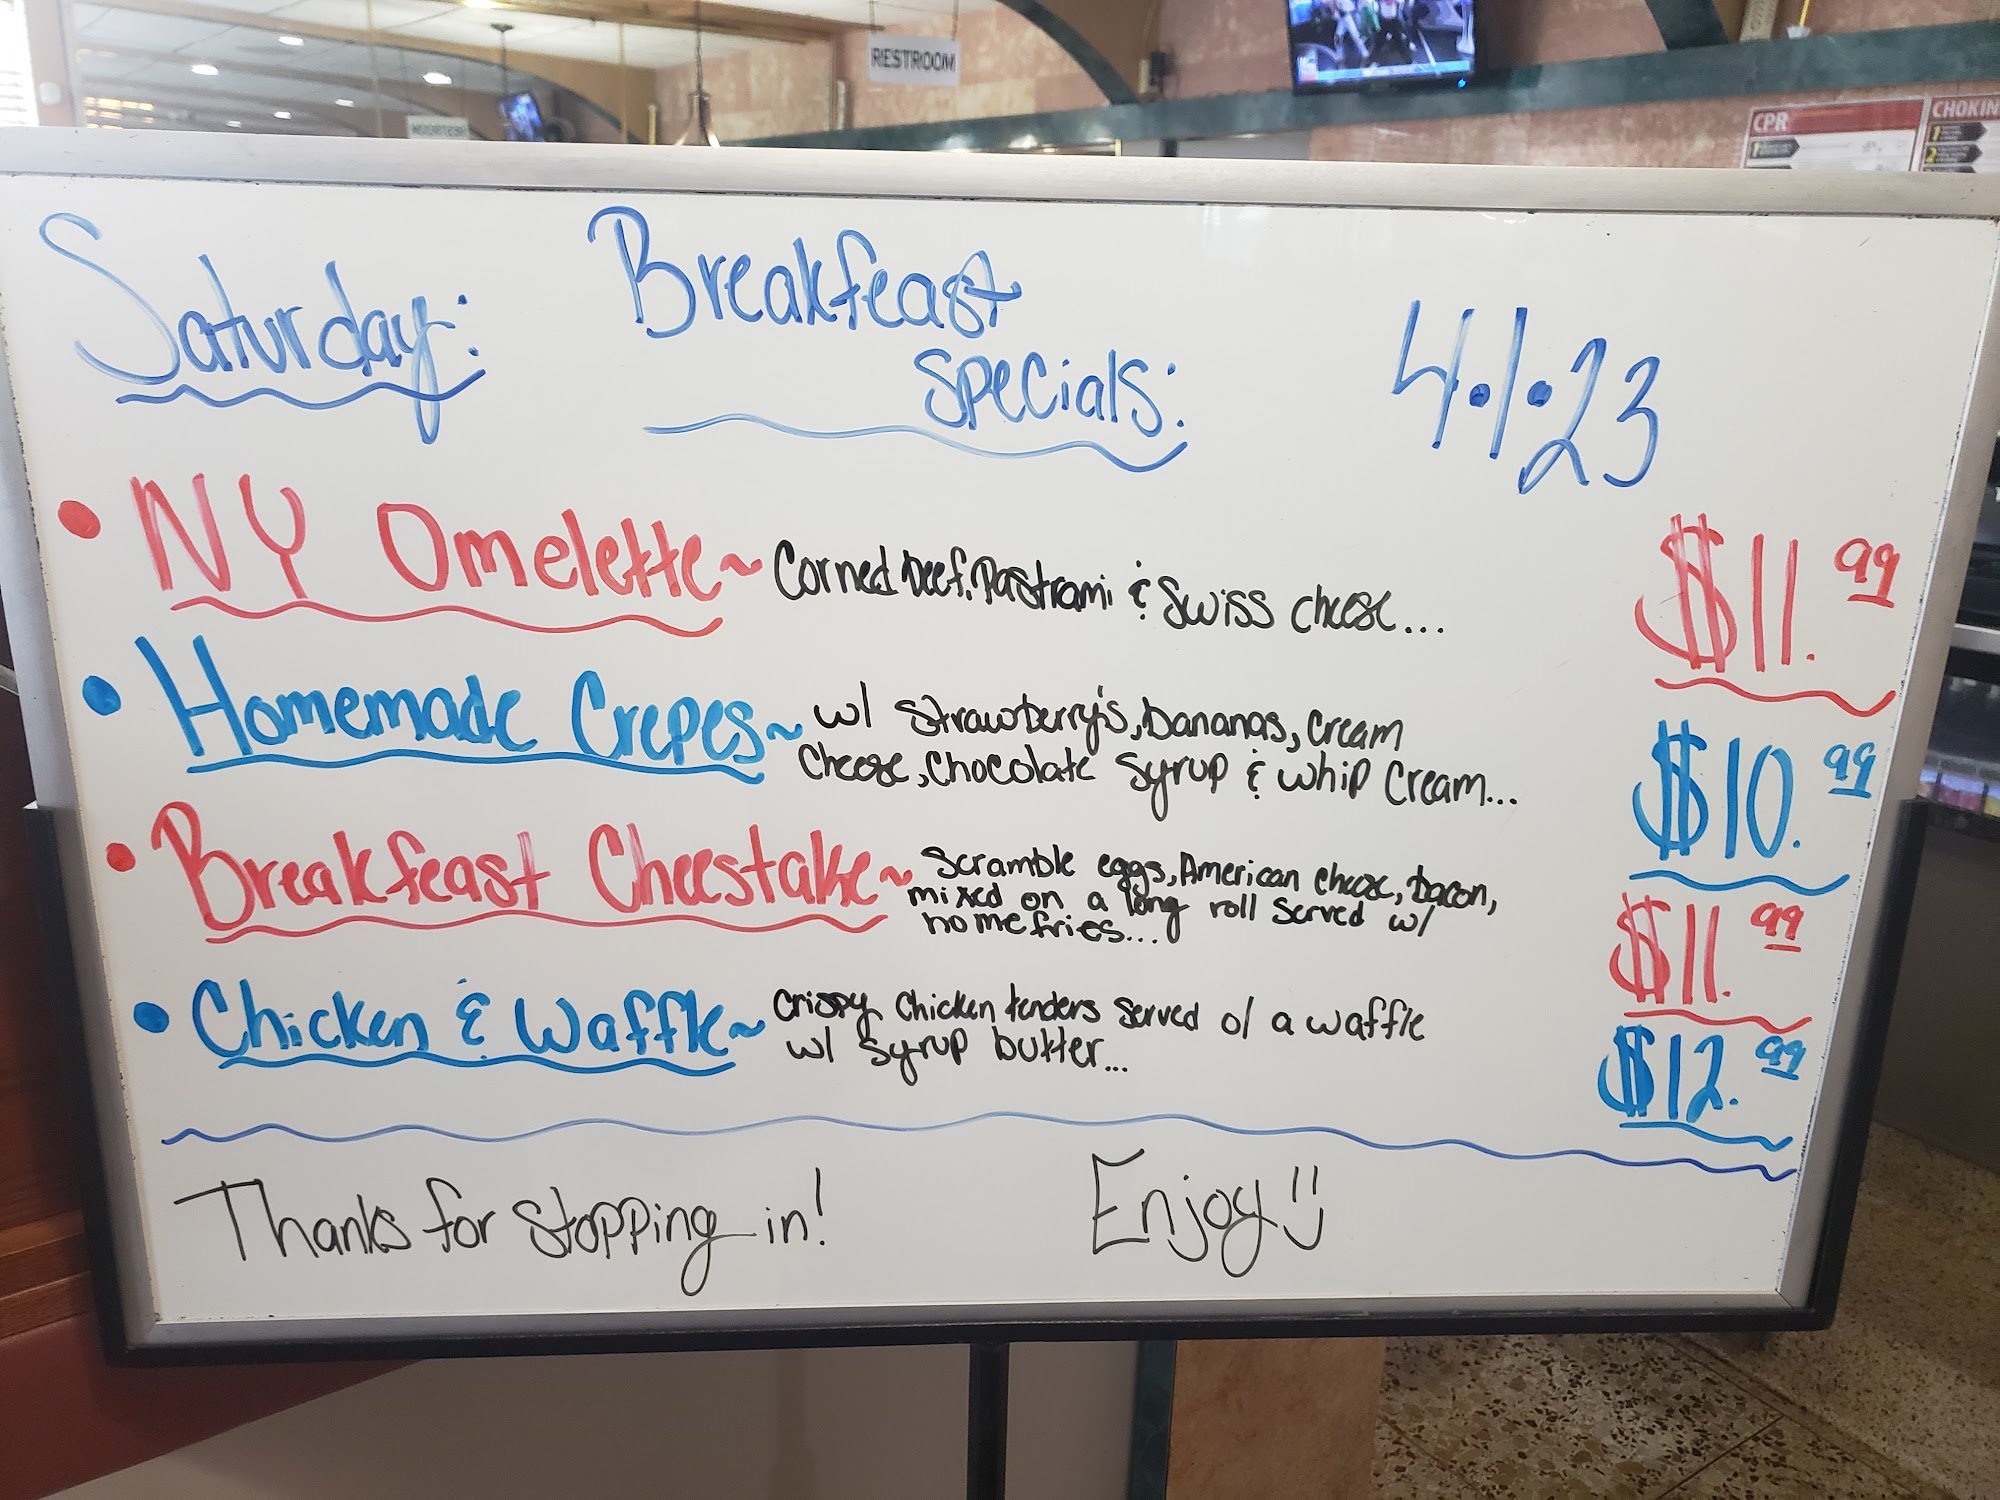 RESTROOM
CPR
CHOKIN
Saturday: Breakfeast
Specials: 4.1.23
• NY Omelette~ Corned beef, Pastrami & Swiss cheese... $11.99
• Homemade Crepes~ w/ Strawberry's, bananas, cream
Cheese, Chocolate Syrup & Whip Cream... $10.99
• Breakfeast Cheestake~ Scramble eggs, American cheese, bacon,
mixed on a long roll served w/
homefries... $11.99
• Chicken & Waffle~ Crispy Chicken tenders Served o/ a waffle
w/ Syrup butter... $12.99
Thanks for stopping in! Enjoy